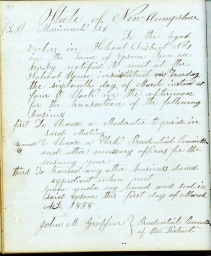 State of New Hampshire
(L.S.) Merrimack SS. To the legal
voters in School District No 1
in the town of you are
hereby notified to meet at the
School House in said district on Tuesday
the sixteenth day of March instant at
four o'clock in the afternoon
for the transaction of the following
business
first To choose a Moderator to preside in
said Meeting
second To choose a Clerk Prudential Committee
and other necessary officers for the
ensuing year
third To transact any other business
expedient when met
Given under my hand and seal in
said this first day of March
A.D. 1858
John M. Griffin } Prudential Committee
of the District